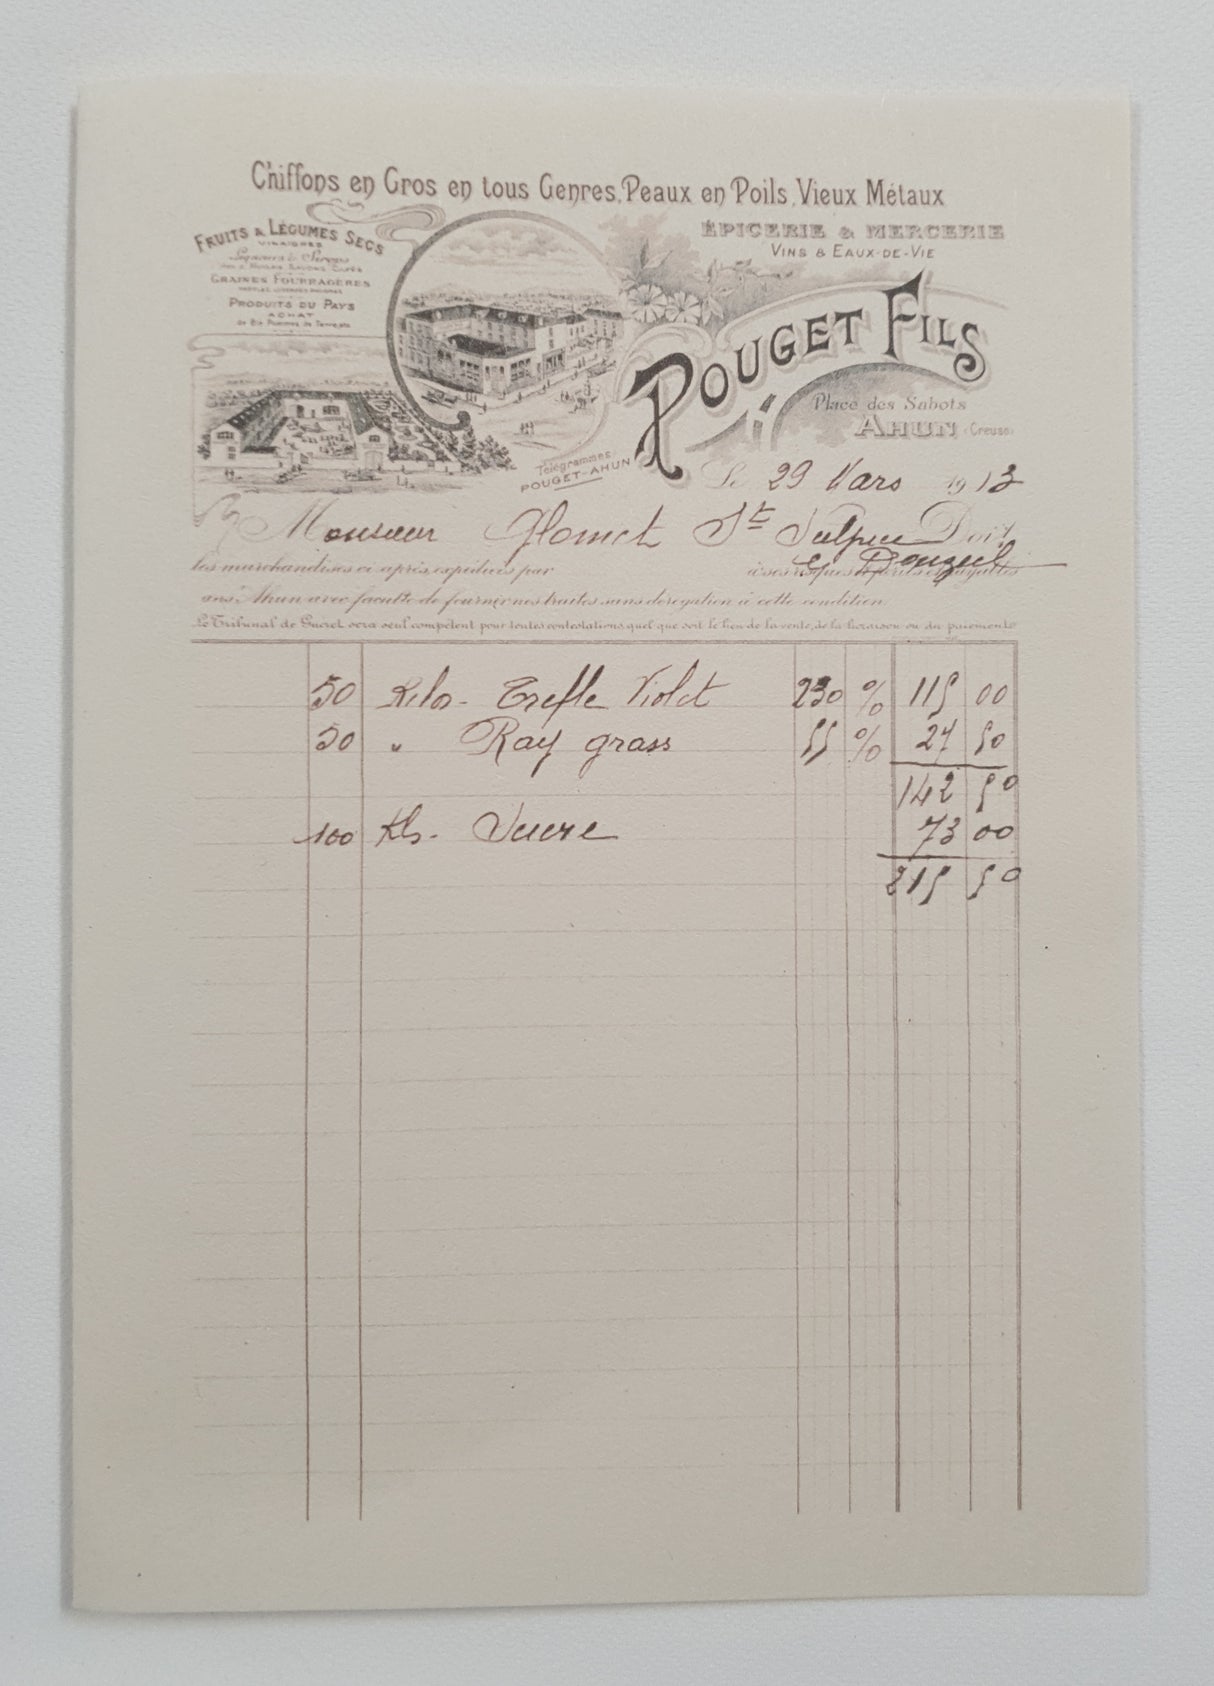 Chiffons en Gros en tous Genres, Peaux en Poils, Vieux Métaux
FRUITS & LÉGUMES SECS
VINAIGRES
Liqueurs & Sirops
HUILES SAVONS CAFÉS
GRAINES FOURRAGÈRES
PRODUITS DU PAYS
ACHAT
de Blé Pommes de Terre, etc
ÉPICERIE & MERCERIE
VINS & EAUX-DE-VIE
POUGET FILS
Place des Sabots
AHUN (Creuse)
Télégrammes
POUGET-AHUN
Le 29 Mars 1913
Monsieur Glomet St Sulpice Doit
les marchandises ci après, expédiées par à ses risques et périls et payables
ans Ahun avec faculté de fournir nos traites sans dérogation à cette condition
Le Tribunal de Guéret sera seul compétent pour toutes contestations, quel que soit le lieu de la vente, de la livraison ou du paiement
50 Kilos - Trefle Violet 230 % 115 00
50 " Ray grass 55 % 27 50
142 50
100 Kls - Sucre 73 00
215 50